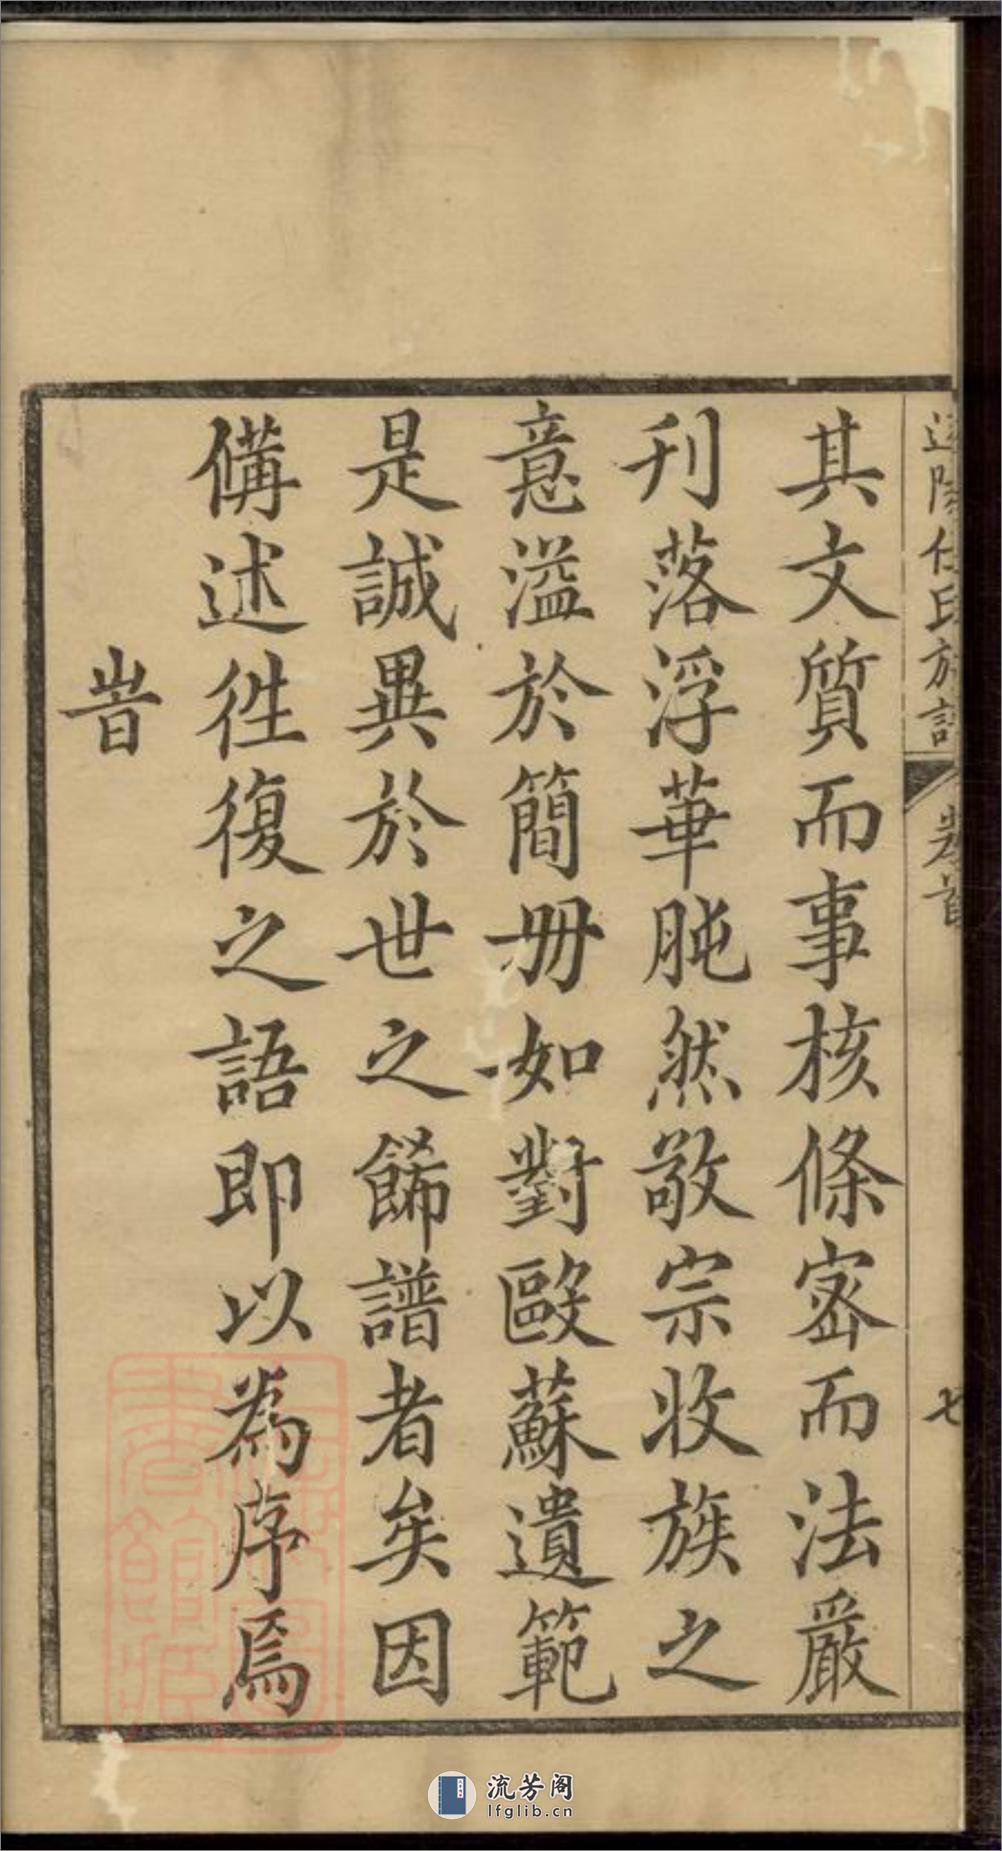 其文質而事核條宻而法嚴
刋落浮華肫然敬宗收族之
意溢於簡册如對歐蘇遺範
是誠異於世之餙譜者矣因
備述徃復之語即以為序焉
旹
任氏族譜
卷首
七
流芳阁
lfglib.cn